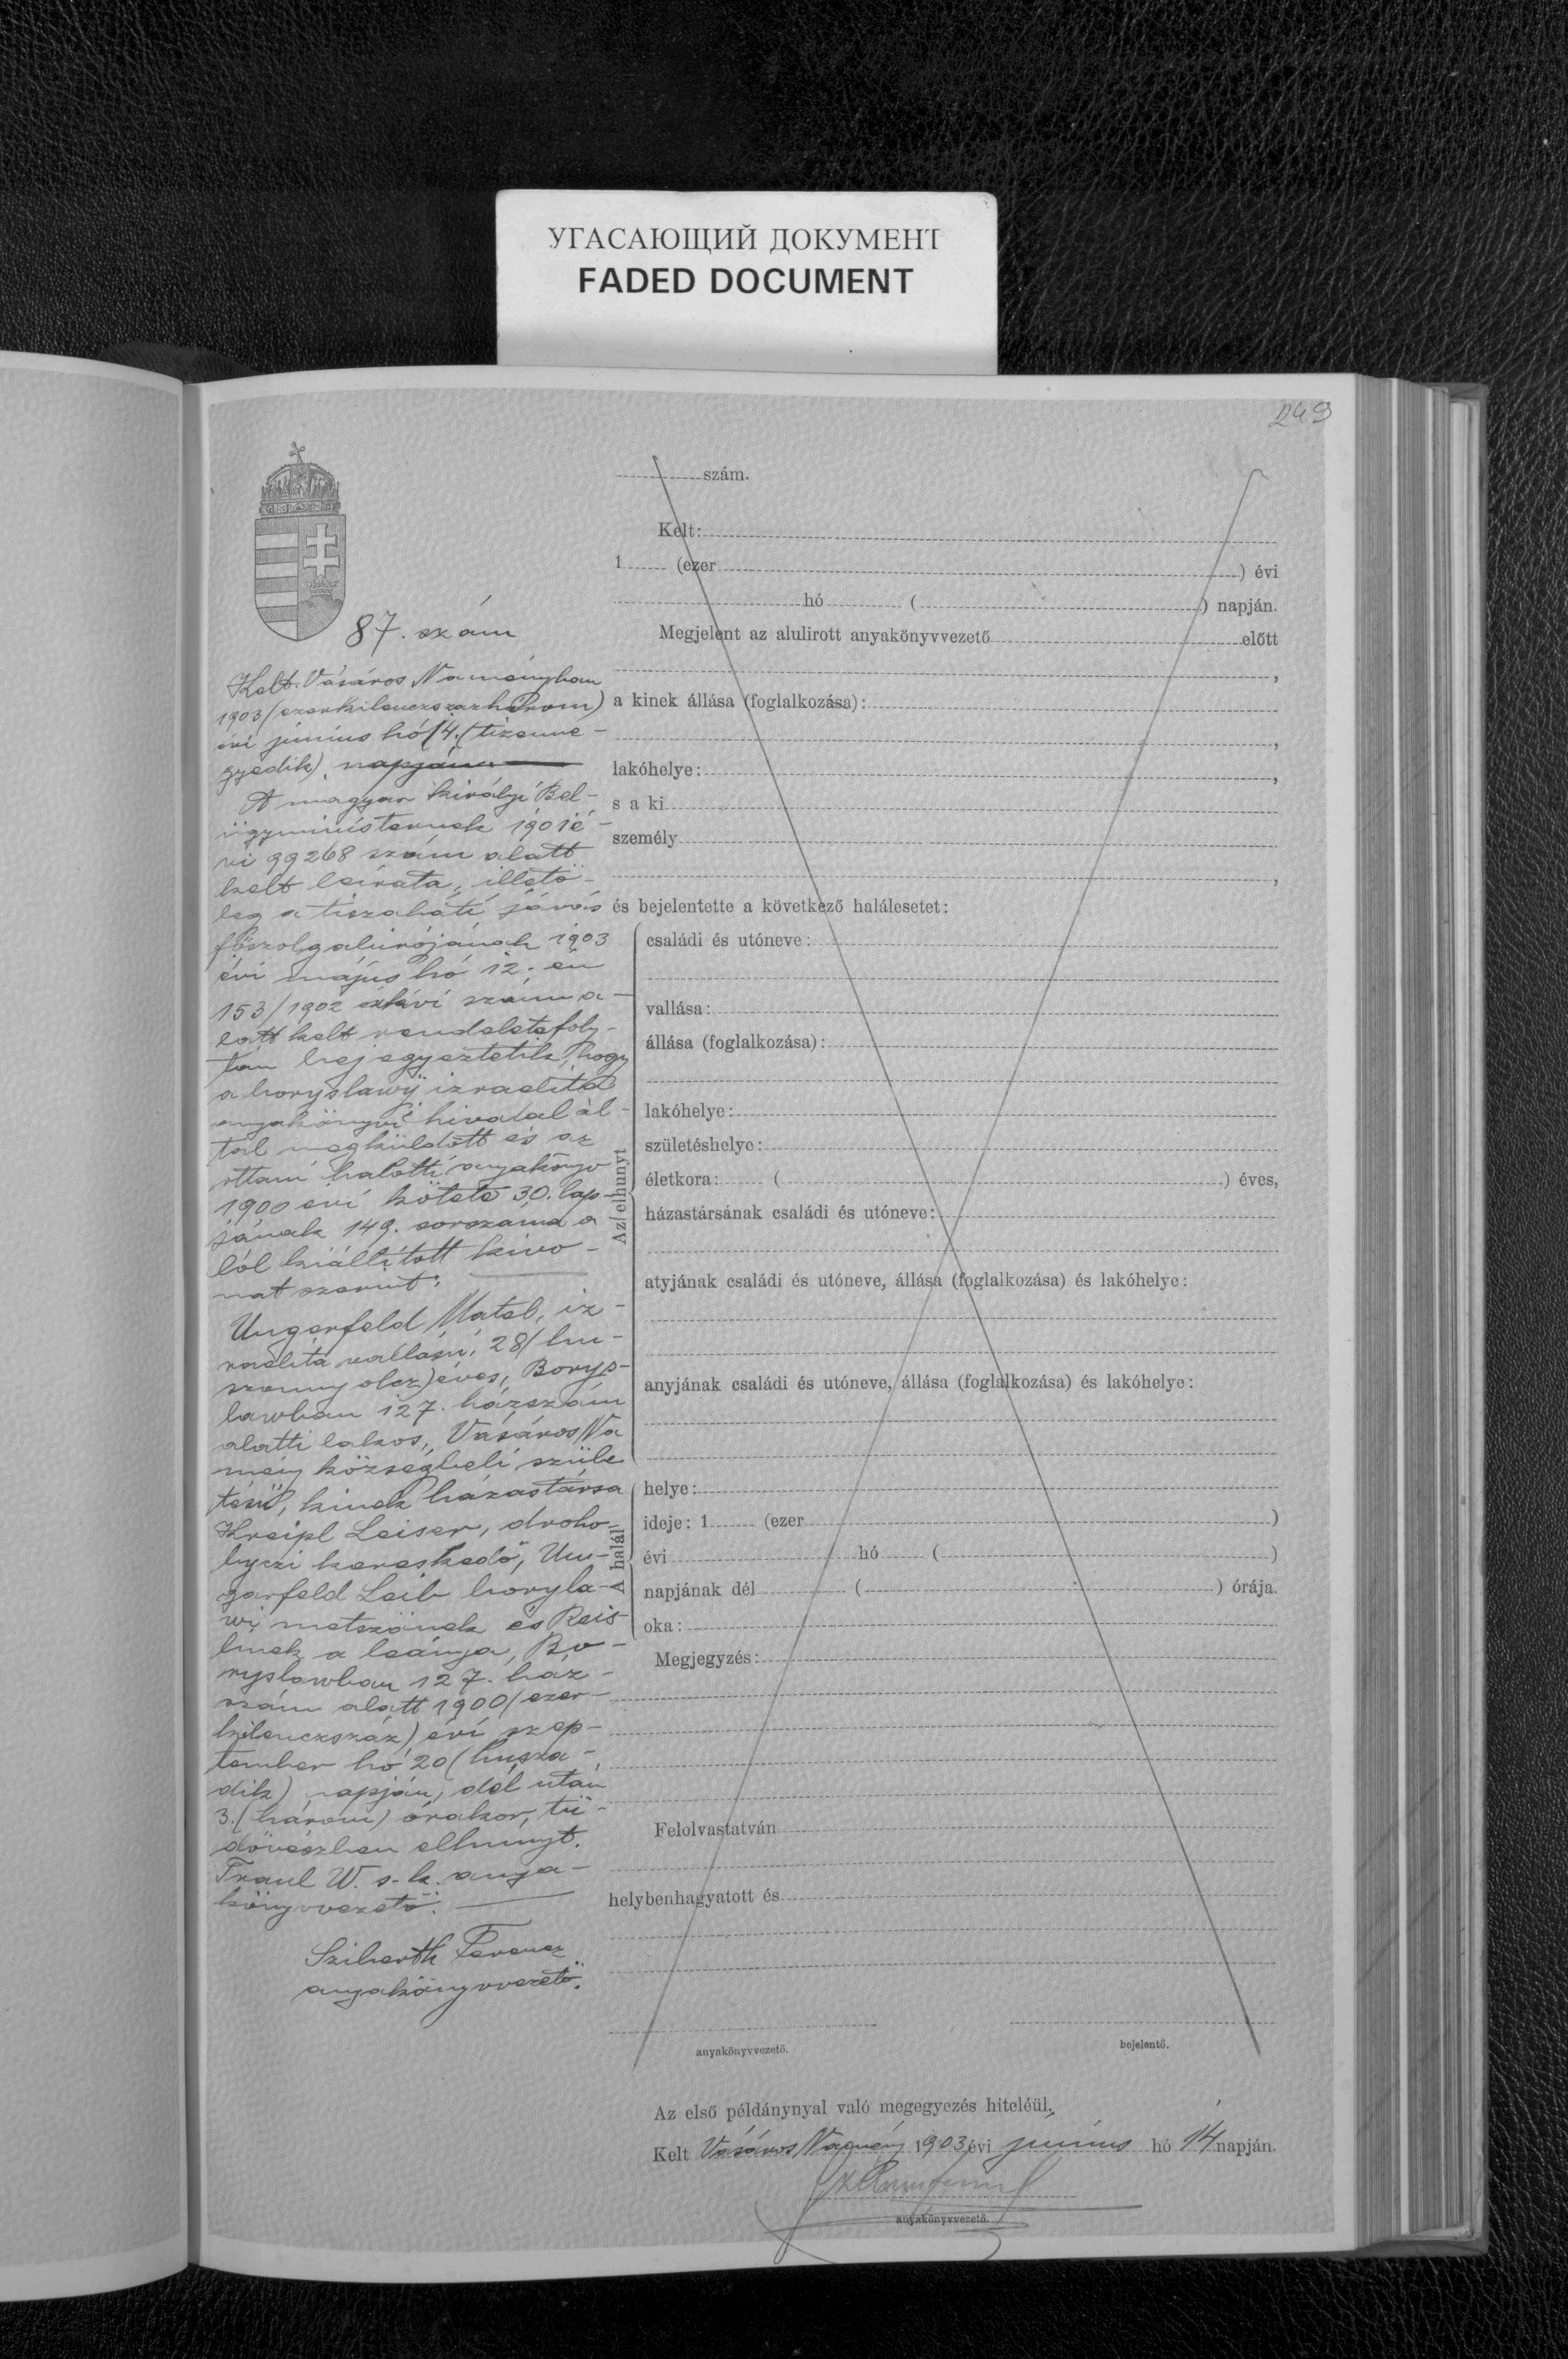 УГАСАЮЩИЙ ДОКУМЕНТ
FADED DOCUMENT
249
87. szám
Kelt. Vásáros Naményban
1903/ezerkilenczszázhárom)
évi június hó 14. (tizenne-
gyedik) napján
A magyar királyi Bel-
ügyministernek 1901 é-
vi 99268 szám alatt
kelt leirata, illető-
leg a tiszaháti járás
főszolgabirójának 1903
évi május hó 12-én
153/1902 szám a-
latt kelt rendelete foly-
tán bejegyeztetik, hogy
a boryslawi izraelita
anyakönyvi hivatal ál-
tal megküldött és az
ottani halotti anyakönyv
1900 évi kötete 30. lap-
jának 149. sorszáma a
lól kiállított kivo-
nat szerint:
Ungerfeld Matel, iz-
raelita vallású, 28/hu-
szonnyolcz) éves, Borys-
lawban 127. házszám
alatti lakos, Vásáros Na
mény községbeli szüle
tésü, kinek házastársa
Kreipl Leiser, droho-
byczi kereskedő, Un-
gerfeld Leib boryla-
wi metszőnek és Reis-
lnek a leánya, Bo-
ryslawban 127. ház-
szám alatt 1900/ezer-
kilenczszáz) évi szep-
tember hó 20 (husza-
dik) napján, dél után
3. (három) órakor, tü-
dővészben elhunyt.
Traul W. s. k. anya-
könyvvezető.
Sziberth Ferencz
anyakönyvvezető.
szám.
Kelt:
1 (ezer ) évi
hó ( ) napján.
Megjelent az alulirott anyakönyvvezető előtt
,
a kinek állása (foglalkozása):
,
lakóhelye: ,
s a ki
személy
,
és bejelentette a következő halálesetet:
Az elhunyt
családi és utóneve:
vallása:
állása (foglalkozása):
lakóhelye:
születéshelye:
életkora: ( ) éves,
házastársának családi és utóneve:
atyjának családi és utóneve, állása (foglalkozása) és lakóhelye:
anyjának családi és utóneve, állása (foglalkozása) és lakóhelye:
A halál
helye:
ideje: 1 (ezer )
évi hó ( )
napjának dél ( ) órája.
oka:
Megjegyzés:
Felolvastatván
helybenhagyatott és
anyakönyvvezető.
bejelentő.
Az első példánynyal való megegyezés hiteléül.
Kelt Vásáros Namény 1903 évi június hó 14 napján.
anyakönyvvezető.